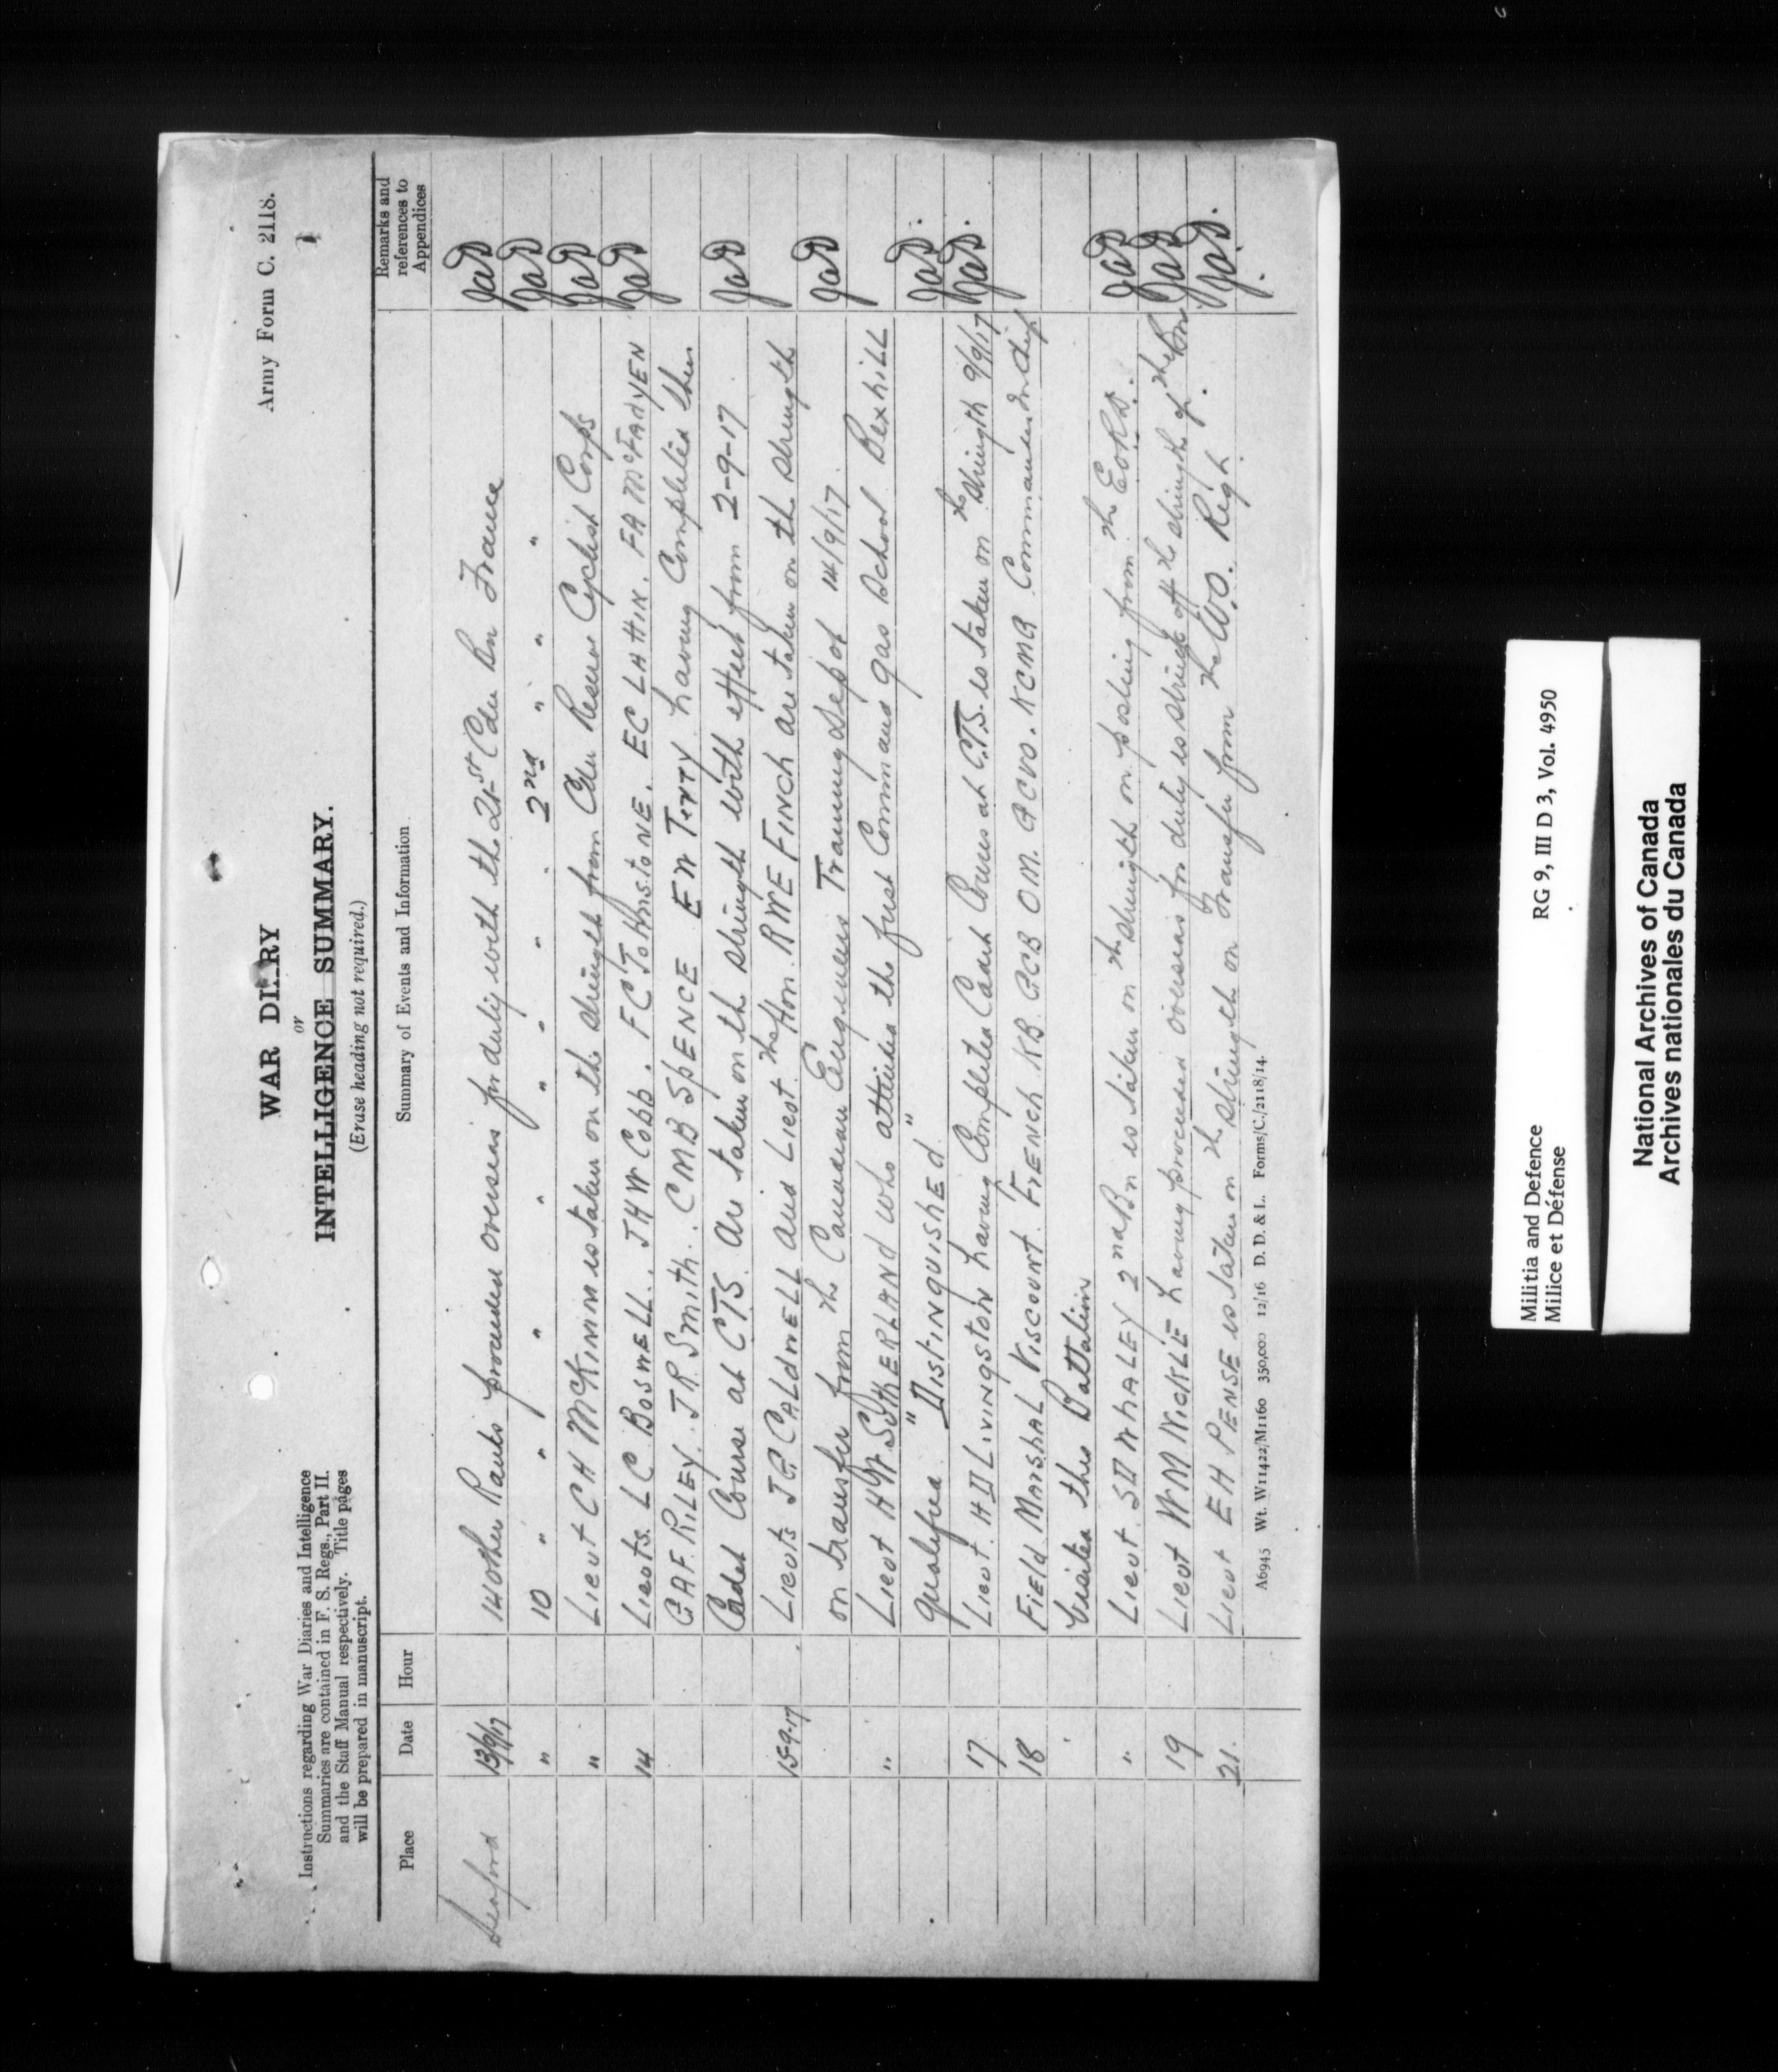 Army Form C. 2118.
WAR DIARY
or
INTELLIGENCE SUMMARY.
(Erase heading not required.)
Instructions regarding War Diaries and Intelligence
Summaries are contained in F. S. Regs., Part II.
and the Staff Manual respectively. Title pages
will be prepared in manuscript.
Place Date Hour Summary of Events and Information Remarks and references to Appendices
Seaford 13/9/17 14 other Ranks proceeded overseas for duty with the 21st Cdn Bn France JaD
" 10 " " " " " " " " 2nd " " " JaD
" Lieut C H McKimm is taken on the strength from Cdn Reserve Cyclist Corps JaD
14 Lieuts. L C BOSWELL. J H W COBB. F C JOHNSTONE. E C LATTIN. F A McFADYEN JaD
G A F. RILEY. J R SMITH. C M B SPENCE E W TERRY having Completed their
Cadet Course at CTS. are taken on the strength with effect from 2-9-17 JaD
15-9-17 Lieuts J G CALDWELL and Lieut. the Hon. R W E FINCH are taken on the strength
on transfer from the Canadian Engineers Training Depot 14/9/17 JaD
" Lieut H W SUTHERLAND who attended the first Command Gas School Bexhill
qualified "DISTINGUISHED" JaD.
17 Lieut. H D LIVINGSTON having Completed Cadet Course at C.T.S. is taken on the strength 9/9/17 JaD.
18 FIELD MARSHAL VISCOUNT FRENCH KP. GCB OM. GCVO. KCMG Commander in Chief
visited this Battalion
" Lieut. S D WHALEY 2nd Bn is taken on the strength on posting from the EORD. JaD
19 Lieut W M NICKLE having proceeded overseas for duty is struck off the strength of the Bn JaD
21. Lieut E H PENSE is taken on the strength on Transfer from the W.O. Regt. JaD.
A6945 Wt. W11422/M1160 350,000 12/16 D. D. & L. Forms/C./2118/14.
Militia and Defence RG 9, III D 3, Vol. 4950
Milice et Défense
National Archives of Canada
Archives nationales du Canada